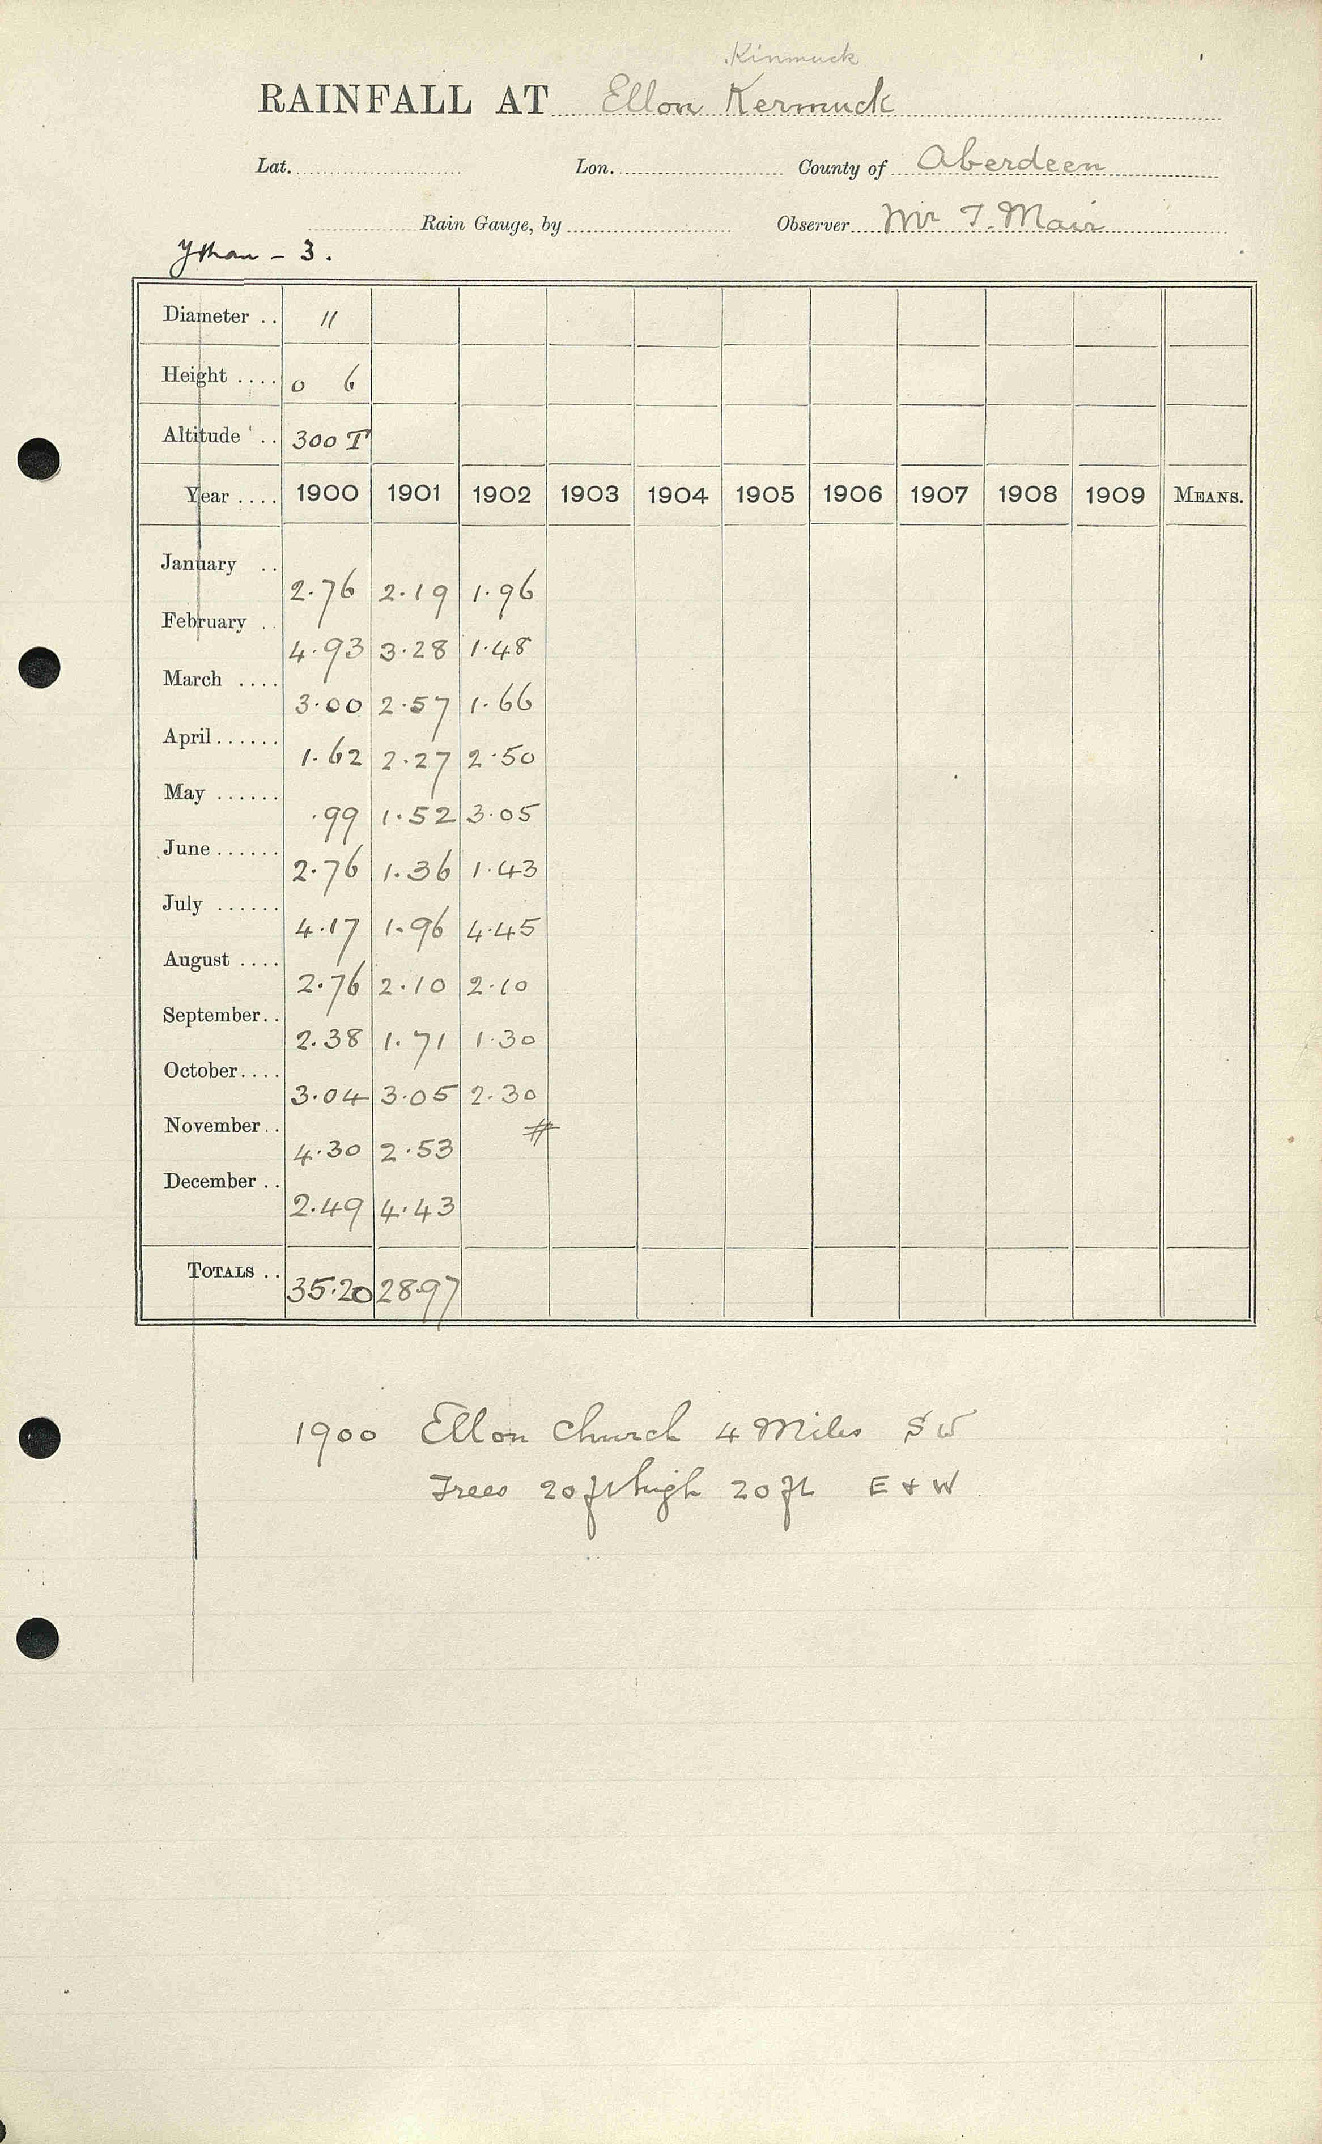 Kinmuck
RAINFALL AT Ellon Kermuck
Lat. Lon. County of Aberdeen
Rain Gauge, by Observer Mr T. Mair
Ythan - 3.
Diameter .. 11
Height .... 0 6
Altitude .. 300 T
Year .... 1900 1901 1902 1903 1904 1905 1906 1907 1908 1909 MEANS.
January .. 2.76 2.19 1.96
February .. 4.93 3.28 1.48
March .... 3.00 2.57 1.66
April...... 1.62 2.27 2.50
May ...... .99 1.52 3.05
June...... 2.76 1.36 1.43
July ...... 4.17 1.96 4.45
August .... 2.76 2.10 2.10
September.. 2.38 1.71 1.30
October.... 3.04 3.05 2.30
November.. 4.30 2.53 #
December .. 2.49 4.43
TOTALS .. 35.20 28.97
1900 Ellon Church 4 Miles SW
Trees 20 ft high 20 ft E + W